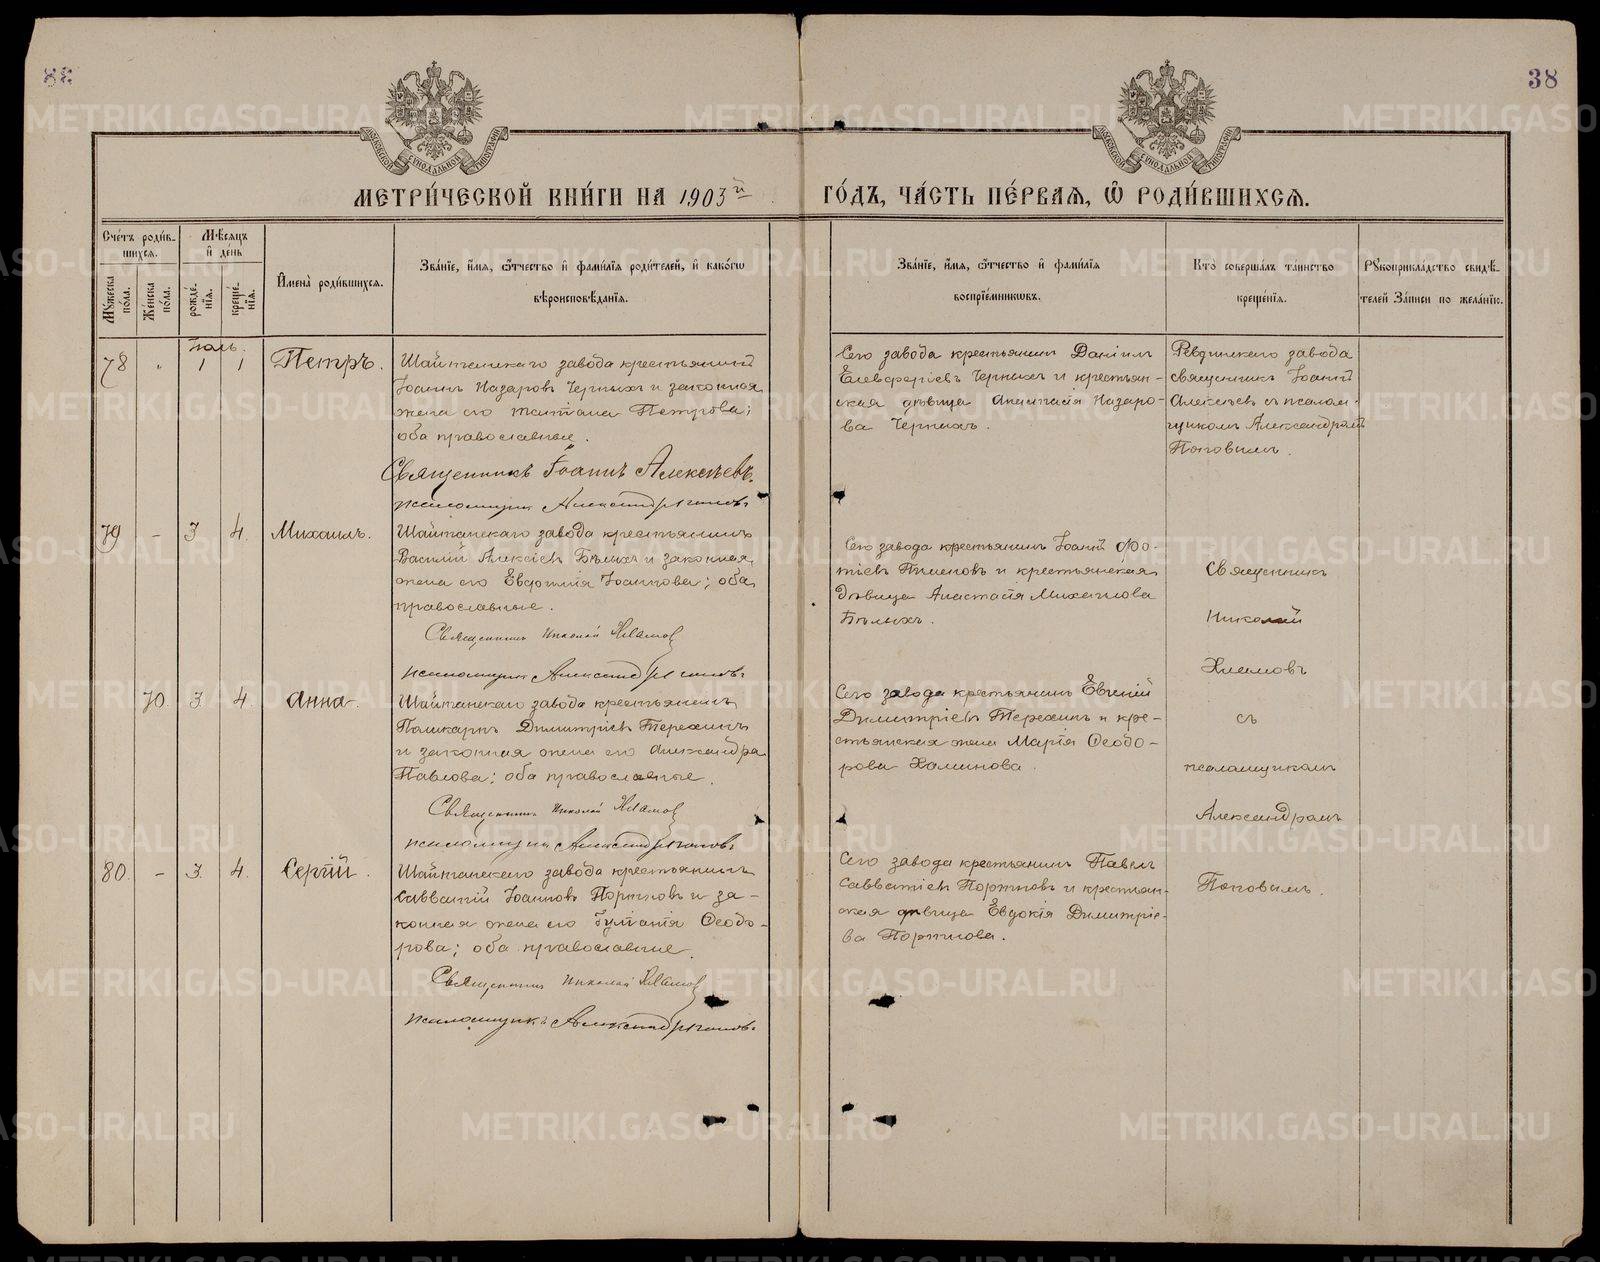 38
МЕТРИ́ЧЕСКОЙ КНИ́ГИ НА 1903й ГО́ДЪ, ЧА́СТЬ ПЕ́РВАЯ, Ѿ РОДИ́ВШИХСЯ.
МОСКОВСКОЙ СѴНОДАЛЬНОЙ ТИПОГРАФІИ
МОСКОВСКОЙ СѴНОДАЛЬНОЙ ТИПОГРАФІИ
Сче́тъ роди́в-
шихся.
Му́жеска по́ла.
Же́нска по́ла.
Мѣ́сяцъ и҆ де́нь
рожде́-
нїя.
креще́-
нїя.
И҆мена̀ роди́вшихся.
Зва́нїе, и҆́мя, ѻ҆́тчество и҆ фами́лїя роди́телей, и҆ како́гѡ
вѣроисповѣ́данїя.
Зва́нїе, и҆́мя, ѻ҆́тчество и҆ фами́лїя
воспрїе́мниковъ.
Кто̀ соверша́лъ та́инство
креще́нїя.
Рꙋкоприкла́дство свидѣ́-
телей За́писи по жела́нїю.
Іюль.
78 " 1 1 Петръ.
Шайтанскаго завода крестьянинъ
Іоаннъ Назаровъ Черныхъ и законная
жена его Татіана Петрова;
оба православные.
Священникъ Іоаннъ Алексѣевъ.
псаломщикъ Александръ Поповъ.
Сего завода крестьянинъ Даніилъ
Елевферіевъ Черныхъ и крестьян-
ская дѣвица Анастасія Назаро-
ва Черныхъ.
Ревдинскаго завода
священникъ Іоаннъ
Алексѣевъ съ псалом-
щикомъ Александромъ
Поповымъ.
79 - 3 4. Михаилъ.
Шайтанскаго завода крестьянинъ
Василій Алексіевъ Бѣлыхъ и законная
жена его Евдокія Іоаннова; оба
православные.
Священникъ Николай Хламовъ
псаломщикъ Александръ Поповъ.
Сего завода крестьянинъ Іоаннъ Фо-
тіевъ Пименовъ и крестьянская
дѣвица Анастасія Михаилова
Бѣлыхъ.
Священникъ
Николай
Хламовъ
съ
псаломщикомъ
Александромъ
Поповымъ.
70 3 4 Анна.
Шайтанскаго завода крестьянинъ
Поликарпъ Димитріевъ Терехинъ
и законная жена его Александра
Павлова; оба православные.
Священникъ Николай Хламовъ
псаломщикъ Александръ Поповъ.
Сего завода крестьянинъ Евгеній
Димитріевъ Терехинъ и кре-
стьянская жена Марія Ѳеодо-
рова Халинова.
80. - 3. 4. Сергій.
Шайтанскаго завода крестьянинъ
Савватій Іоанновъ Портновъ и за-
конная жена его Іуліанія Ѳеодо-
рова; оба православные.
Священникъ Николай Хламовъ
псаломщикъ Александръ Поповъ.
Сего завода крестьянинъ Павелъ
Савватіевъ Портновъ и крестьян-
ская дѣвица Евдокія Димитріе-
ва Портнова.
METRIKI.GASO-URAL.RU